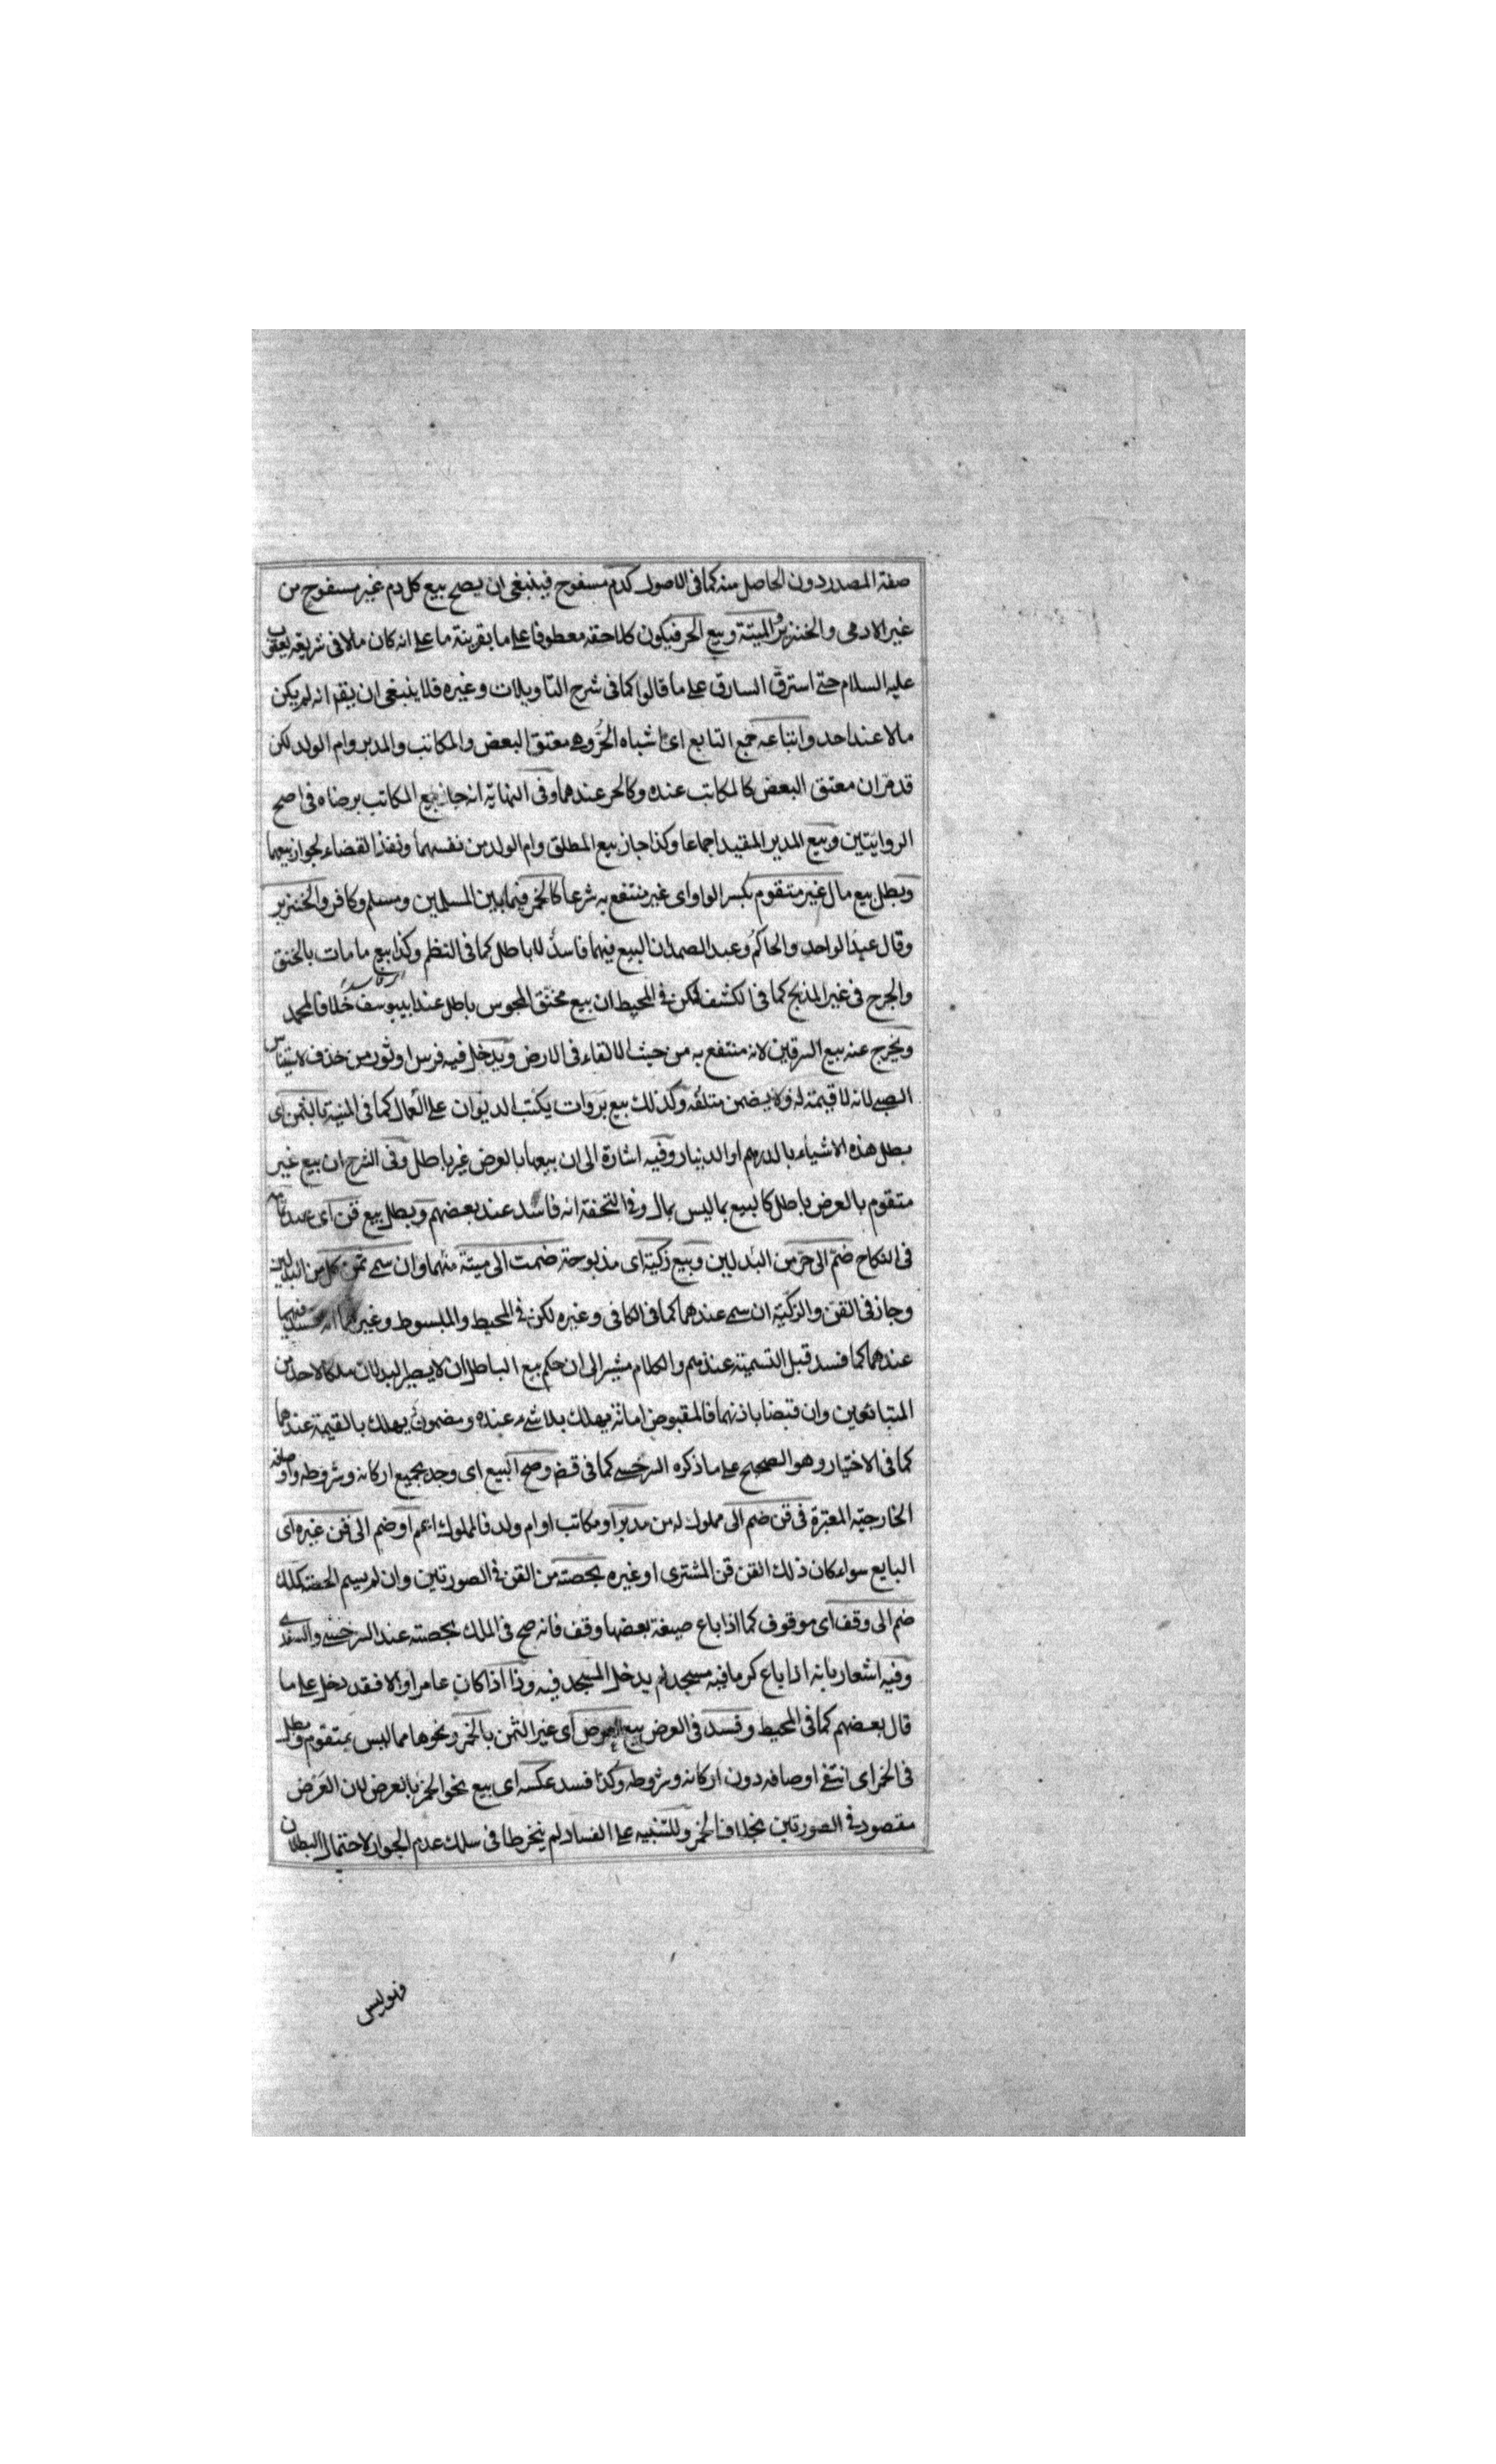 صفة المصدر دون الحاصل منه كما فى الاصول كدم مسفوح فينبغى ان يصح بيع كل دم غير مسفوح من
غير الادمى والخنزير والميتة وبيع الحر فيكون كلاحقه معطوفا على ما بقرينة ما على انه كان مالا فى شريعة يعقوب
عليه السلام حتى استرق السارق على ما قالوا كما فى شرح التاويلات وغيره فلا ينبغى ان يقم انه لم يكن
مالا عند احد واتباعه جمع التابع اى اشباه الحر وهى معتق البعض والمكاتب والمدبر وام الولد لكن
قد مر ان معتق البعض كالمكاتب عنده وكالحر عندهما وفى النهاية انه جاز بيع المكاتب برضاه فى اصح
الروايتين وبيع المدبر المقيد اجماعا وكذا جاز بيع المطلق وام الولد من نفسهما ونفذ القضاء بجواز بيعهما
وبطل بيع مال غير متقوم بكسر الواو اى غير منتفع به شرعا كالخمر فيما بين المسلمين ومسلم وكافر والخنزير
وقال عبد الواحد والحاكم وعبد الصمد ان البيع فيهما فاسد لا باطل كما فى النظم وكذا بيع ما مات بالخنق
والجرح فى غير المذبح كما فى الكشف لكن فى المحيط ان بيع مخنق المجوس باطل عند ابى يوسف خلافا لمحمد
ويخرج عنه بيع السرقين لانه منتفع به من حيث الالقاء فى الارض ويدخل فيه فرس او ثور من خذف لاستيناس
الصبى لانه لا قيمة له ولا يضمن متلفه وكذلك بيع بروات يكتب الديوان على العمال كما فى المنية بالثمن اى
بطل هذه الاشياء بالدرهم او الدينار وفيه اشارة الى ان بيعها بالعرض غير باطل وفى الشرح ان بيع غير
متقوم بالعرض باطل كالبيع بما ليس بمال وفى التحفة انه فاسد عند بعضهم وبطل بيع قن اى عبد
فى النكاح ضم الى حر من البدلين وبيع زكية اى مذبوحة ضمت الى ميتة منهما وان سمى ثمن كل من البدلين
وجاز فى القن والزكية ان سمى عندهما كما فى الكافى وغيره لكن فى المحيط والمبسوط وغيرهما انه فسد فيهما
عندهما كما فسد قبل التسمية عندهم والكلام مشير الى ان حكم بيع الباطل ان لا يصير البدلان ملكا لاحد من
المتبائعين وان قبضا باذنهما فالمقبوض امانة يهلك بلا شىء عنده ومضمون يهلك بالقيمة عندهما
كما فى الاختيار وهو الصحيح على ما ذكره السرخسى كما فى قض وصح البيع اى وجد بجميع اركانه وشروطه واوصافه
الخارجية المعتبرة فى قن ضم الى مملوك له من مدبر او مكاتب او ام ولد فالمملوك اعم او ضم الى قن غيره اى
البايع سواء كان ذلك القن قن المشترى او غيره بحصته من القن فى الصورتين وان لم يسم الحصة كملك
ضم الى وقف اى موقوف كما اذا باع ضيعة بعضها وقف فانه صح فى الملك بحصته عند السرخسى والسغدى
وفيه اشعار بانه اذا باع كرما فيه مسجد لم يدخل المسجد فيه وذا اذا كان عامرا والا فقد دخل على ما
قال بعضهم كما فى المحيط وفسد فى العرض بيع العرض اى غير الثمن بالخمر ونحوها مما ليس بمتقوم وبطل
فى الخمر اى انتفى اوصافه دون اركانه وشروطه وكذا فسد عكسه اى بيع نحو الخمر بالعرض لان العرض
مقصود فى الصورتين بخلاف الخمر وللتنبيه على الفساد لم ينخرطا فى سلك عدم الجواز لاحتمال البطلان